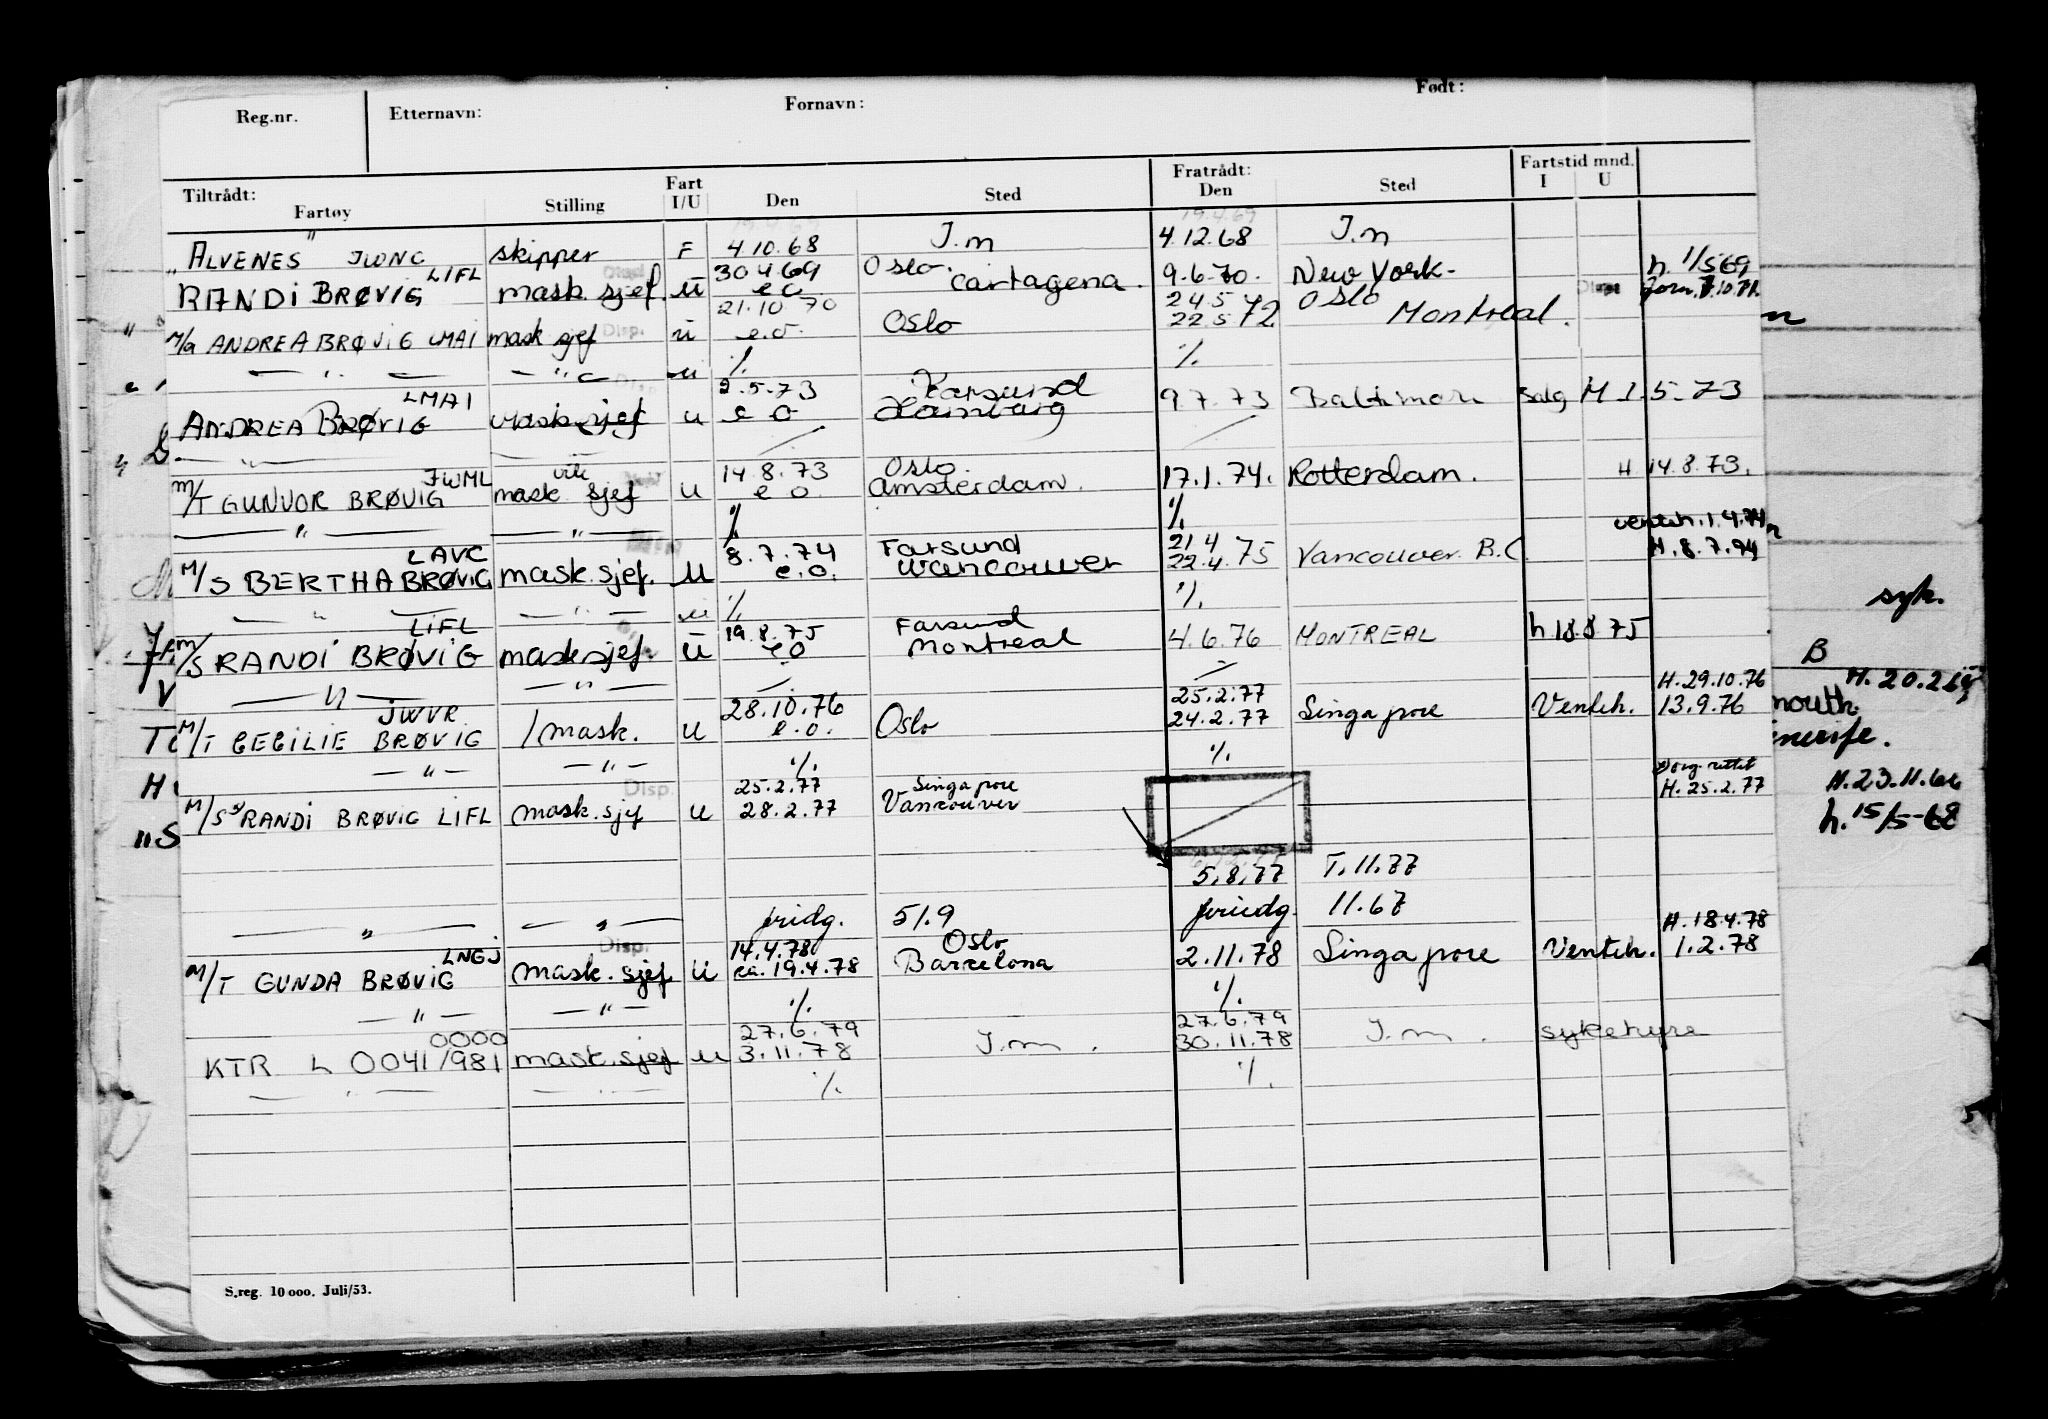 Reg.nr. Etternavn: Fornavn: Født:
Tiltrådt: Fart Fratrådt: Fartstid mnd.
Fartøy Stilling I/U Den Sted Den Sted I U
"ALVENES" JWNG skipper F 4.10.68 I.m 4.12.68 I.m
LIFL 30.4.69 Oslo. h. 1/5 69
RANDI BRØVIG mask. sjef. u e o Cartagena. 9.6.70. New York.
21.10.70 24.5 Oslo
M/S ANDREA BRØVIG LMAI mask sjef Disp. u e.o. Oslo 22.5 72 Montreal.
— " — — " — u % %
LMAI 2.5.73 Farsund
ANDREA BRØVIG mask sjef u e o Hamburg 9.7.73 Baltimore salg M 1.5.73
— " —
JWML vik 14.8.73 Oslo.
M/T GUNVOR BRØVIG mask sjef u e o. Amsterdam. 17.1.74. Rotterdam. H 14.8.73.
— " — — " — % % venteh. 1.4.74
LAVC 8.7.74 Farsund 21.4
M/S BERTHA BRØVIG mask. sjef. u e.o. Vancouver 22.4.75 Vancouver. B.C. H. 8.7.74
— " — — " — u % %
LIFL 19.8.75 Farsund
M/S RANDI BRØVIG mask sjef. u e o Montreal 4.6.76 MONTREAL h. 18.8 75
— " — — " —
JWVR 28.10.76 25.2.77 H. 29.10.76
M/T CECILIE BRØVIG 1 mask. u e.o. Oslo 24.2.77 Singapore Venteh. 13.9.76
— " — — " — % %
Disp. 25.2.77 Singapore
M/S RANDI BRØVIG LIFL mask. sjef u 28.2.77 Vancouver H. 25.2.77
5.8.77 T.11.77
— " — — " — fridg. 51.9 friedg. 11.67
LNGJ Disp. 14.4.78 Oslo H. 18.4.78
M/T GUNDA BRØVIG mask. sjef u ca. 19.4.78 Barcelona 2.11.78 Singapore Venteh. 1.2.78
— " — — " — % %
0000 27.6.79 27.6.79
KTR L 0041/981 mask. sjef u 3.11.78 I.m. 30.11.78 I.m. sykehyre
— " — — " — % %
S.reg. 10 000. Juli/53.
syk.
B
H. 20.2.
mouth
enerife.
H. 23.11.66
h. 15/5-68